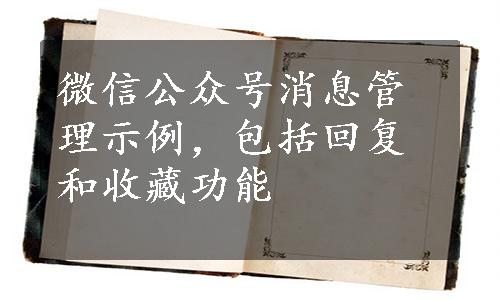 微信公众号消息管
理示例，包括回复
和收藏功能